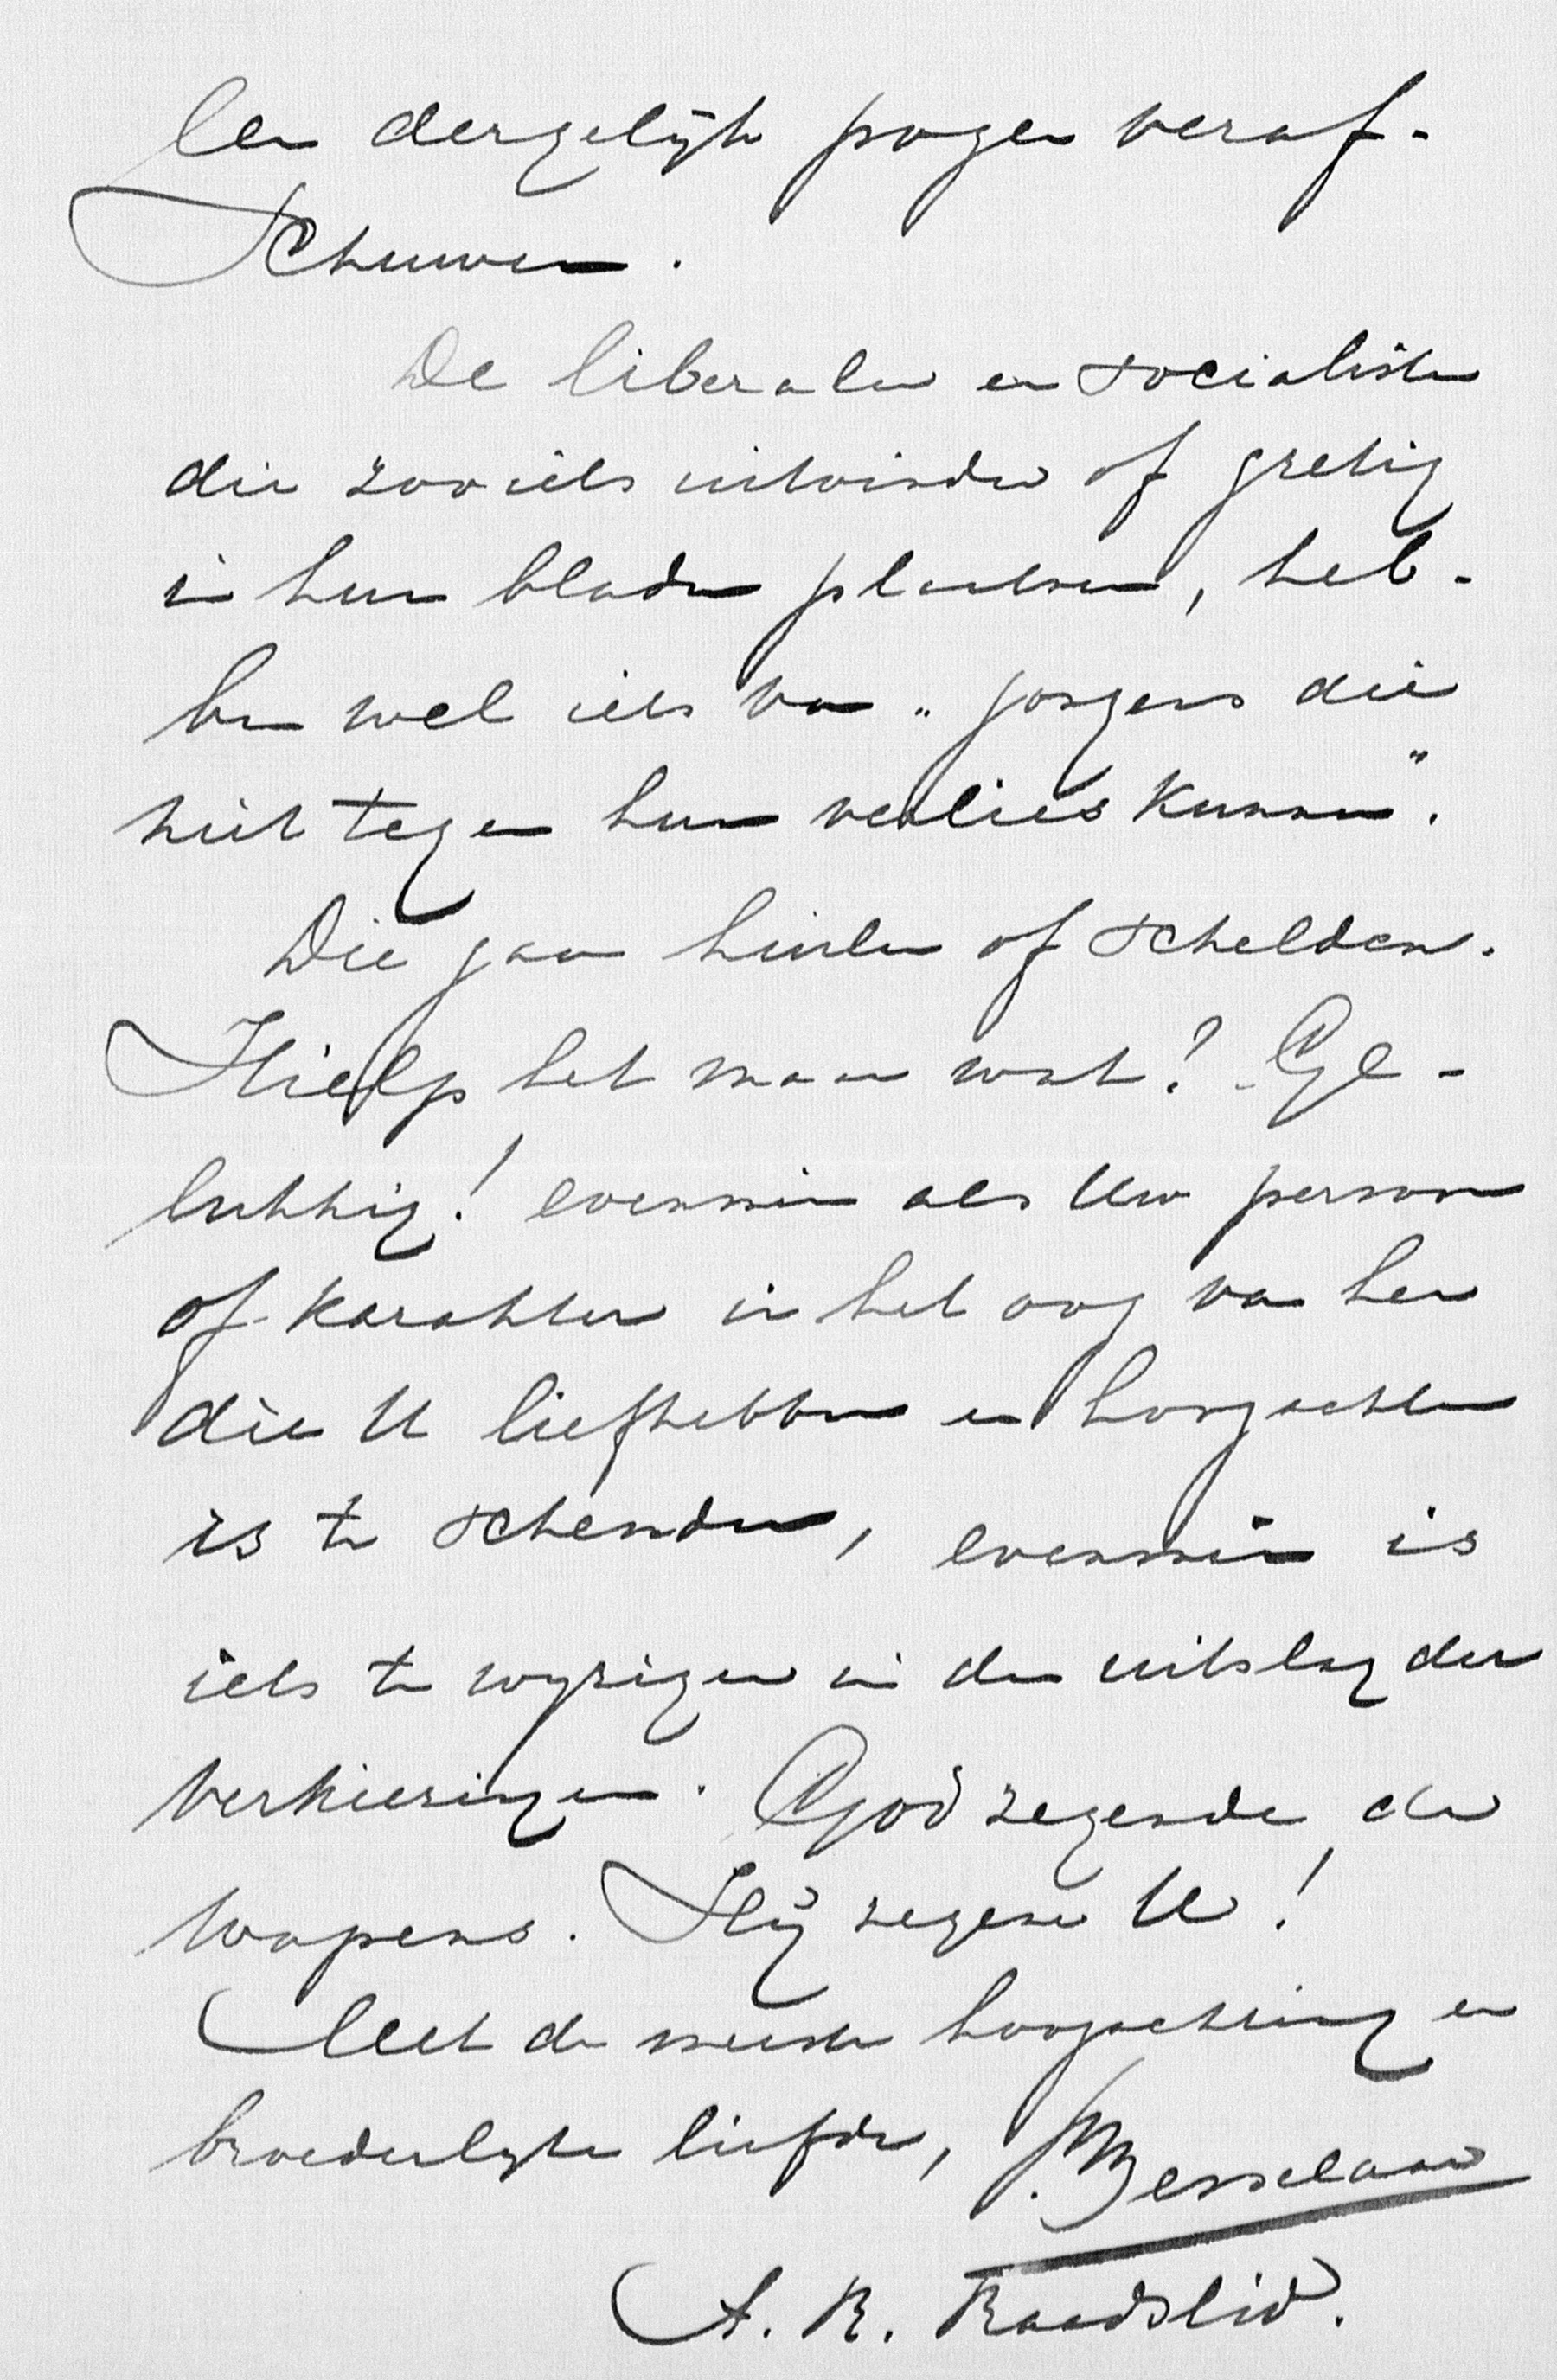 Een dergelijk pogen veraf-
schuwen.
De liberalen en socialisten
die zoo iets uitvinden of gretig
in hun bladen plaatsen, heb-
ben wel iets van „jongens die
niet tegen hun verlies kunnen".
Die gaan huilen of schelden.
Hielp het maar wat? Ge-
lukkig! evenmin als Uw persoon
of karakter in het oog van hen
die U liefhebben en hoogachten
is te schenden, evenmin is
iets te wijzigen in den uitslag der
verkiezingen. God zegende de
wapens. Hij zegene U!
Met de meeste hoogachting en
broederlijke liefde, Besselaar
A. R. Raadslid.